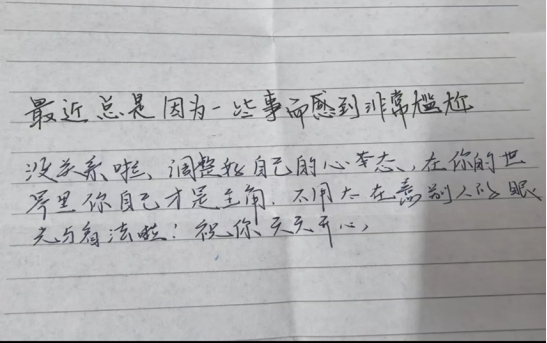 最近总是因为一些事而感到非常尴尬
没关系啦、调整好自己的心态、在你的世
界里你自己才是主角、不用太在意别人的眼
光与看法啦！祝你天天开心,